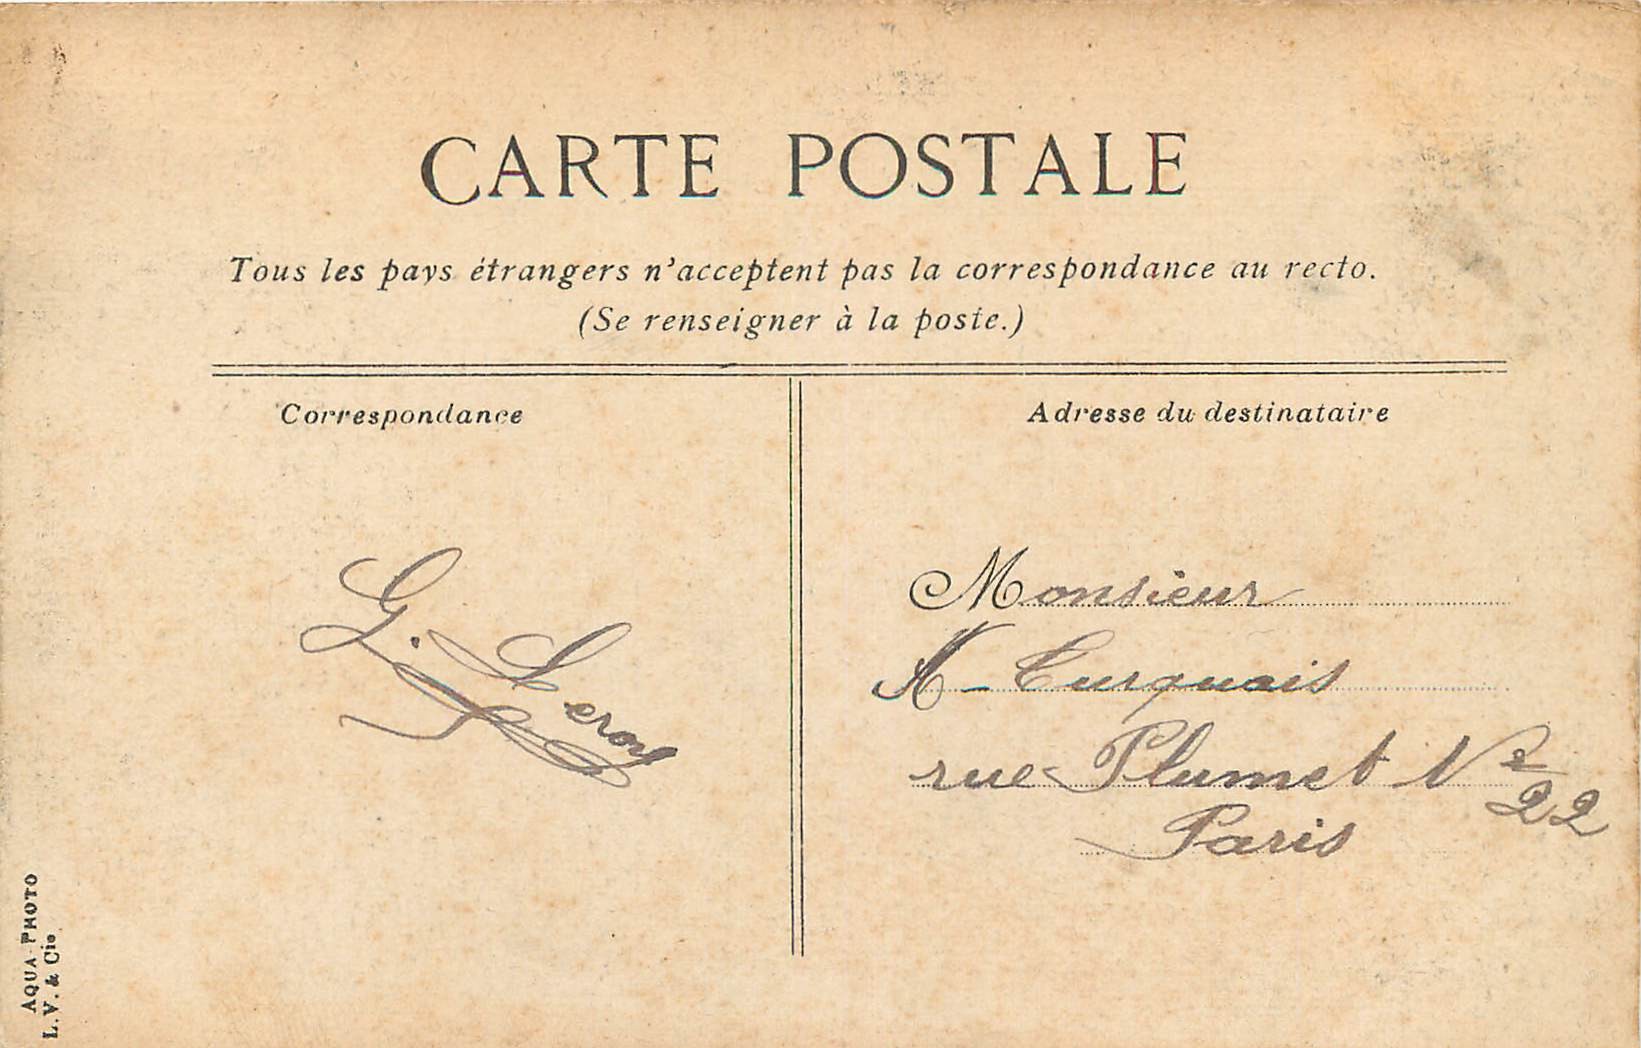 CARTE POSTALE
Tous les pays étrangers n'acceptent pas la correspondance au recto.
(Se renseigner à la poste.)
Correspondance
Adresse du destinataire
G. Leroy
Monsieur
A - Turquais
rue Plumet Nº
22
Paris
AQUA-PHOTO
L. V. & Cie